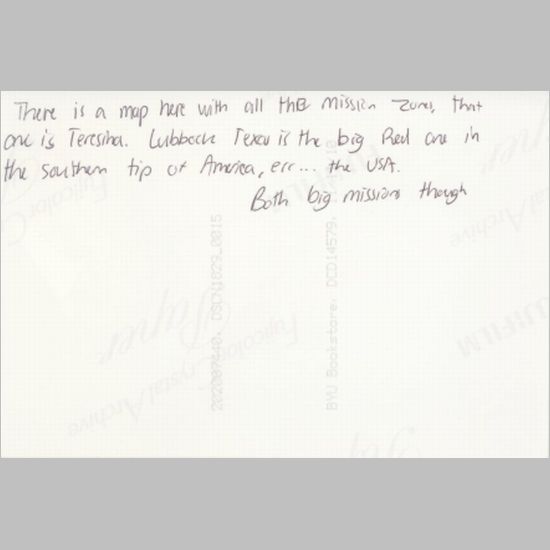 There is a map here with all the mission zones, that
one is Teresina. Lubbock Texas is the big Red one in
the southern tip of America, err... the USA.
Both big missions though
202007440. DSCN1029_0015
BYU Bookstore. DCD14579.
Fujicolor Crystal Archive
Paper
FUJIFILM